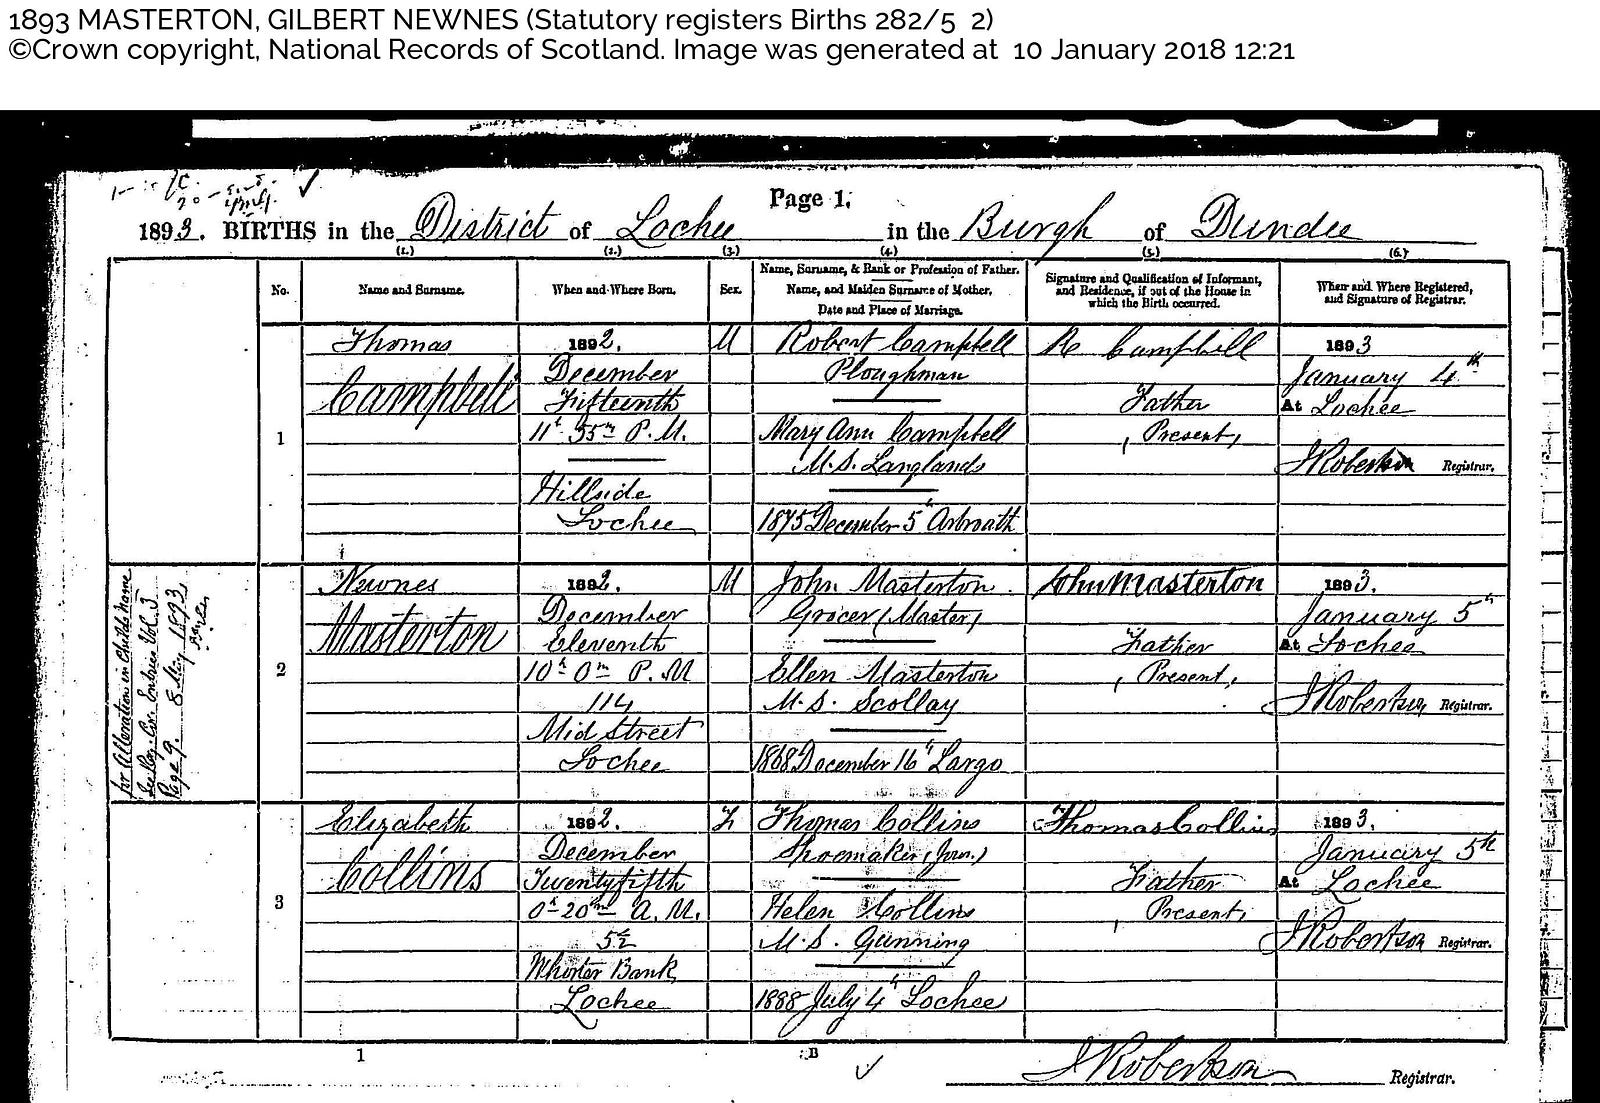 1893 MASTERTON, GILBERT NEWNES (Statutory registers Births 282/5 2)
©Crown copyright, National Records of Scotland. Image was generated at 10 January 2018 12:21
Page 1.
1893. BIRTHS in the District of Lochee in the Burgh of Dundee
(1.) (2.) (3.) (4.) (5.) (6.)
No.
Name and Surname.
When and Where Born.
Sex.
Name, Surname, & Rank or Profession of Father.
Name, and Maiden Surname of Mother.
Date and Place of Marriage.
Signature and Qualification of Informant,
and Residence, if out of the House in
which the Birth occurred.
When and Where Registered,
and Signature of Registrar.
1
Thomas
Campbell
1892.
December
Fifteenth
11h 55m P.M.
Hillside
Lochee
M
Robert Campbell
Ploughman
Mary Ann Campbell
M.S. Langlands
1875 December 5th Arbroath
R Campbell
Father
(Present)
1893
January 4th
At Lochee
J Robertson Registrar.
for Alteration in Childs name
See Reg. Cor. Entries Vol. 3
Page 9. 8 May 1893
2
Newnes
Masterton
1892.
December
Eleventh
10h 0m P.M
114
Mid Street
Lochee
M
John Masterton
Grocer (Master)
Ellen Masterton
M.S. Scollay
1868 December 16th Largo
John Masterton
Father
(Present)
1893.
January 5th
At Lochee
J Robertson Registrar.
3
Elizabeth
Collins
1892.
December
Twentyfifth
0h 20m A.M.
52
Whorter Bank
Lochee
F
Thomas Collins
Shoemaker (Jour.)
Helen Collins
M.S. Gunning
1888 July 4th Lochee
Thomas Collins
Father
(Present)
1893.
January 5th
At Lochee
J Robertson Registrar.
1
B
J Robertson Registrar.